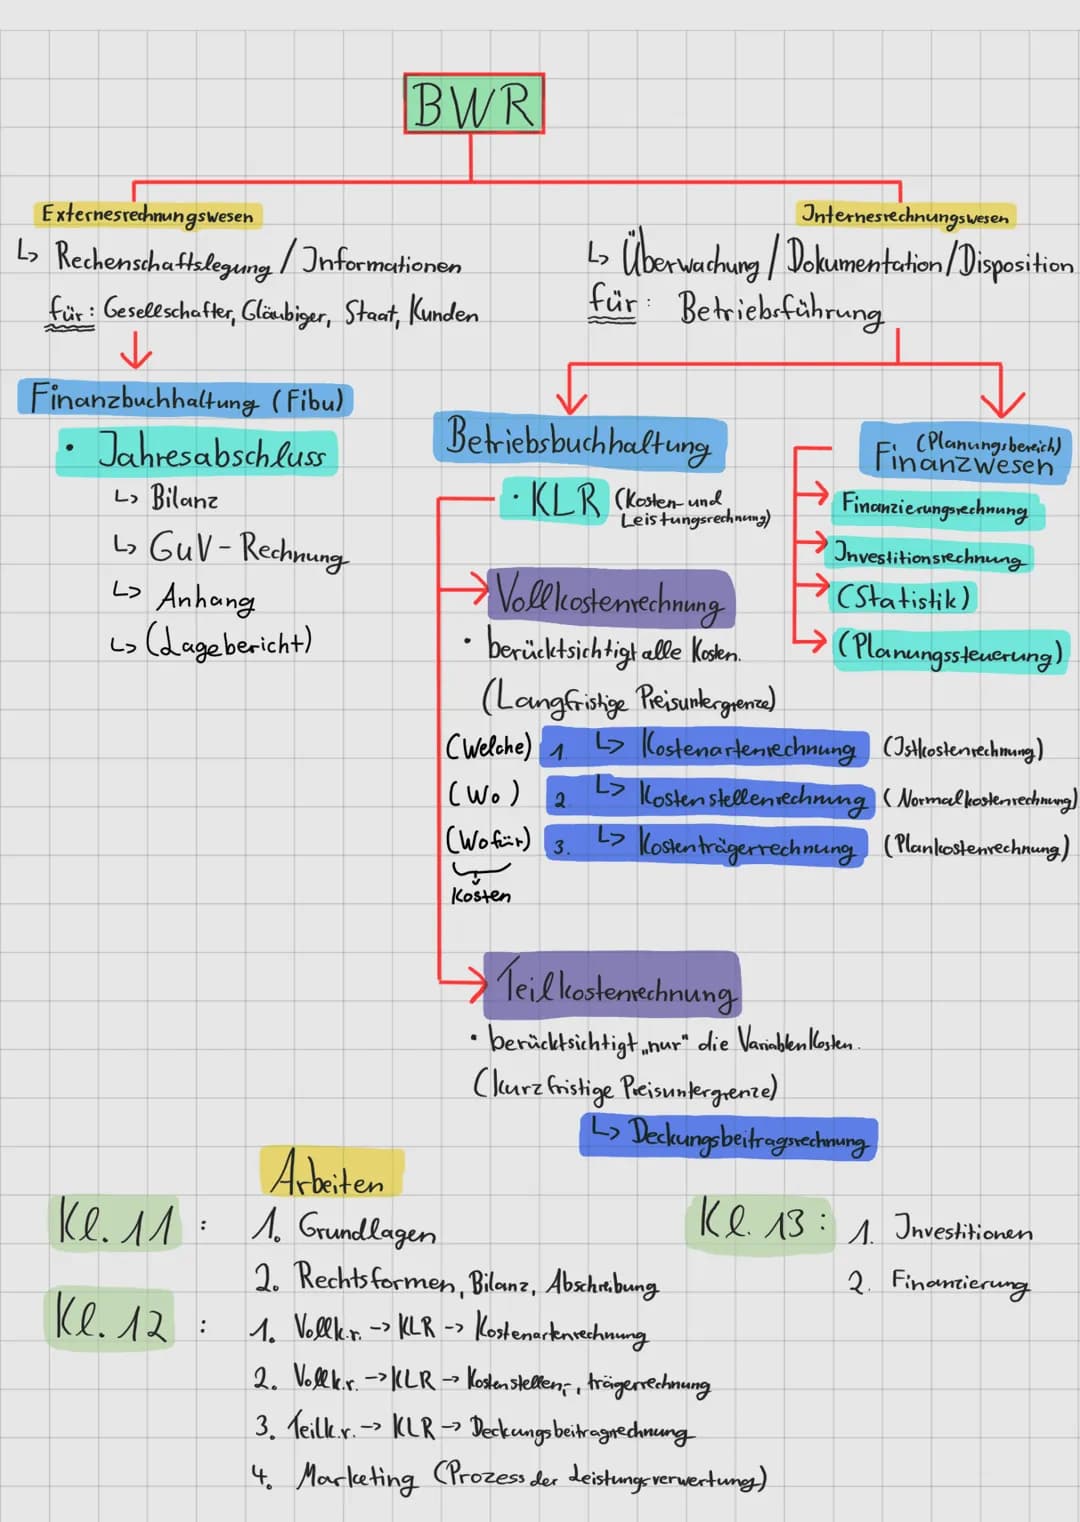 BWR
Externesrechnungswesen
↳ Rechenschaftslegung / Informationen
für: Gesellschafter, Gläubiger, Staat, Kunden
Finanzbuchhaltung (Fibu)
• Jahresabschluss
↳ Bilanz
↳ GuV-Rechnung
↳ Anhang
↳ (Lagebericht)
Internesrechnungswesen
↳ Überwachung / Dokumentation / Disposition
für: Betriebsführung
Betriebsbuchhaltung
• KLR (Kosten- und
Leistungsrechnung)
Vollkostenrechnung
• berücktsichtigt alle Kosten.
(Langfristige Preisuntergrenze)
(Welche) 1. ↳ Kostenartenrechnung (Istkostenrechnung)
(Wo) 2. ↳ Kostenstellenrechnung (Normalkostenrechnung)
(Wofür) 3. ↳ Kostenträgerrechnung (Plankostenrechnung)
Kosten
Teilkostenrechnung
• berücktsichtigt „nur" die Variablen Kosten.
(kurzfristige Preisuntergrenze)
↳ Deckungsbeitragsrechnung
(Planungsbereich)
Finanzwesen
Finanzierungsrechnung
Investitionsrechnung
(Statistik)
(Planungssteuerung)
Arbeiten
Kl. 11 : 1. Grundlagen
2. Rechtsformen, Bilanz, Abschreibung
Kl. 12 : 1. Vollk.r. -> KLR -> Kostenartenrechnung
2. Vollk.r. -> KLR -> Kostenstellen-, trägerrechnung
3. Teilk.r. -> KLR -> Deckungsbeitragrechnung
4. Marketing (Prozess der Leistungsverwertung)
Kl. 13 : 1. Investitionen
2. Finanzierung